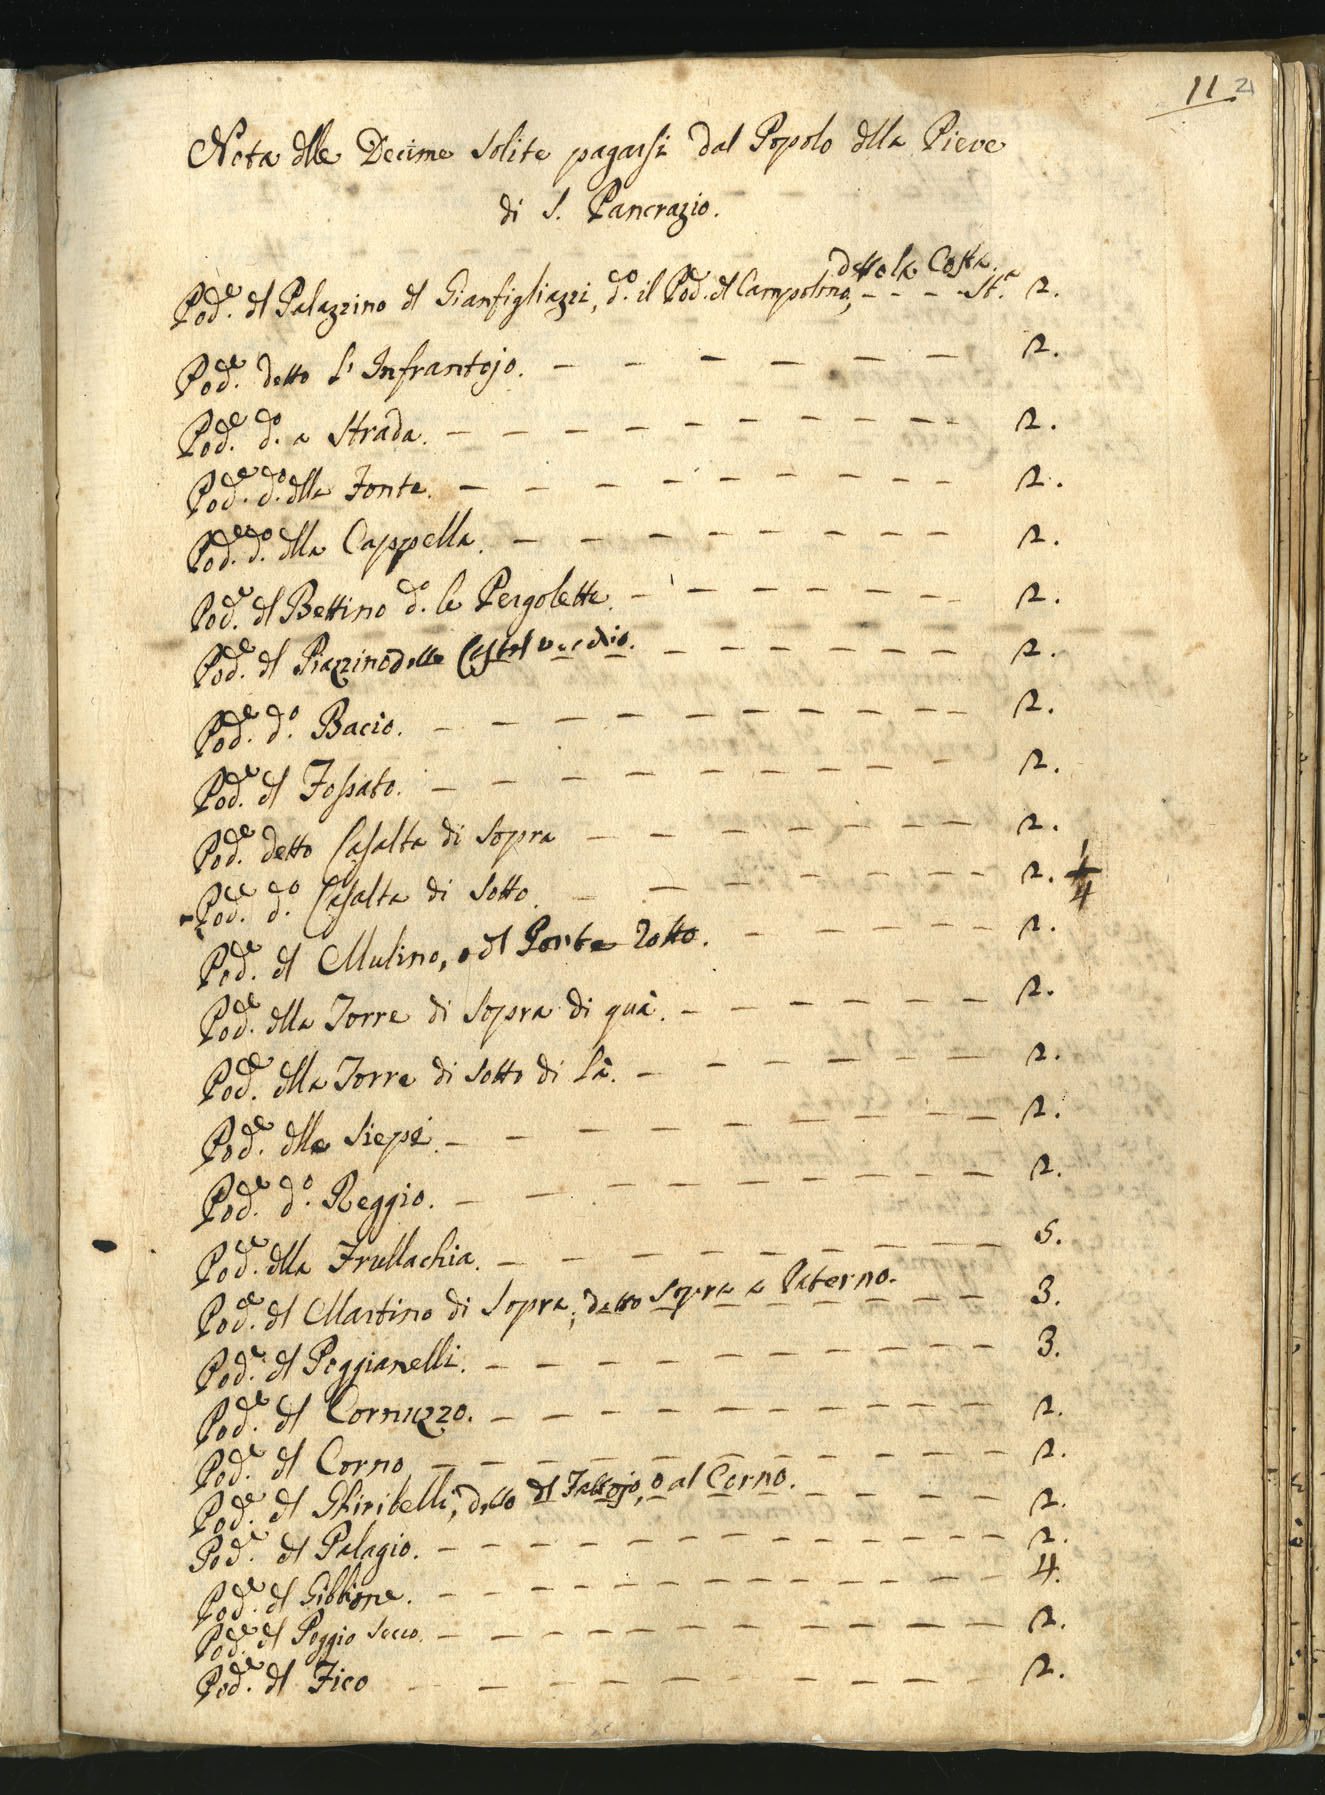 11 21
Nota dlle Decime solite pagarsi dal Popolo dlla Pieve
di S. Pancrazio.
detto la Costa.
Pod.e dl Palazzino dl Gianfigliazzi, d.o il Pod. dl Campolino, - - - - St.a 2.
Pod.e detto l'Infrantojo. - - - - - - 2.
Pod.e d.o a Strada. - - - - - - - - - 2.
Pod.e d.o dlla Fonte. - - - - - - - - - 2.
Pod.e d.o dlla Cappella. - - - - - - - - 2.
Pod.e dl Bettino d.o le Pergolette. - - - - - - - 2.
Pod.e dl Piazzino delle Castelvecchio. - - - - - - 2.
Pod.e d.o Bacio. - - - - - - - - - - 2.
Pod.e dl Fossato. - - - - - - - - - 2.
Pod.e detto Casalta di Sopra - - - - - - - 2.
Pod.e d.o Casalta di Sotto. - - - - - - - 2. 1/4
Pod.e dl Mulino, o dl Ponte Rotto. - - - - - 2.
Pod.e dlla Torre di Sopra di quà. - - - - - - 2.
Pod.e dlla Torre di Sotto di là. - - - - - - 2.
Pod.e dlle Siepi. - - - - - - - - - 2.
Pod.e d.o Reggio. - - - - - - - - - 2.
Pod.e dlla Frullachia. - - - - - - - - - 5.
Pod.e dl Martino di Sopra, detto Sopra a Paterno. - - 3.
Pod.e dl Poggianelli. - - - - - - - - - 3.
Pod.e dl Cornuzzo. - - - - - - - - - 2.
Pod.e dl Corno - - - - - - - - - - 2.
Pod.e dl Ghiribelli, detto dl Fattojo, o al Corno. - - - 2.
Pod.e dl Palagio. - - - - - - - - - - - 2.
Pod.e dl Gibbione. - - - - - - - - - - - 4.
Pod.e dl Poggio Secco. - - - - - - - - - - 2.
Pod.e dl Fico - - - - - - - - - 2.